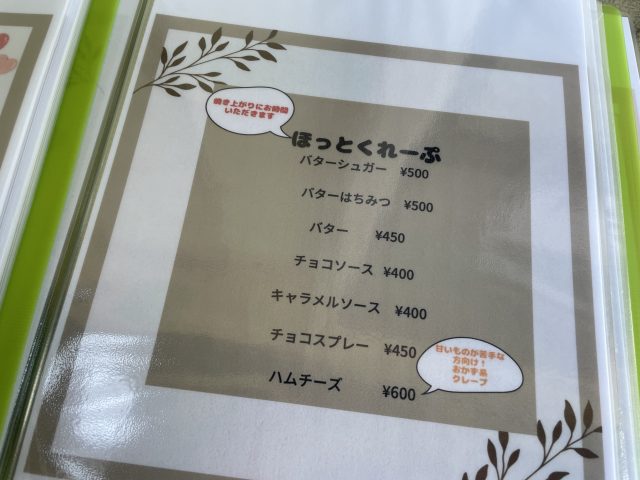 焼き上がりにお時間
いただきます
ほっとくれーぷ
バターシュガー ¥500
バターはちみつ ¥500
バター ¥450
チョコソース ¥400
キャラメルソース ¥400
チョコスプレー ¥450
ハムチーズ ¥600
甘いものが苦手な
方向け！
おかず系
クレープ